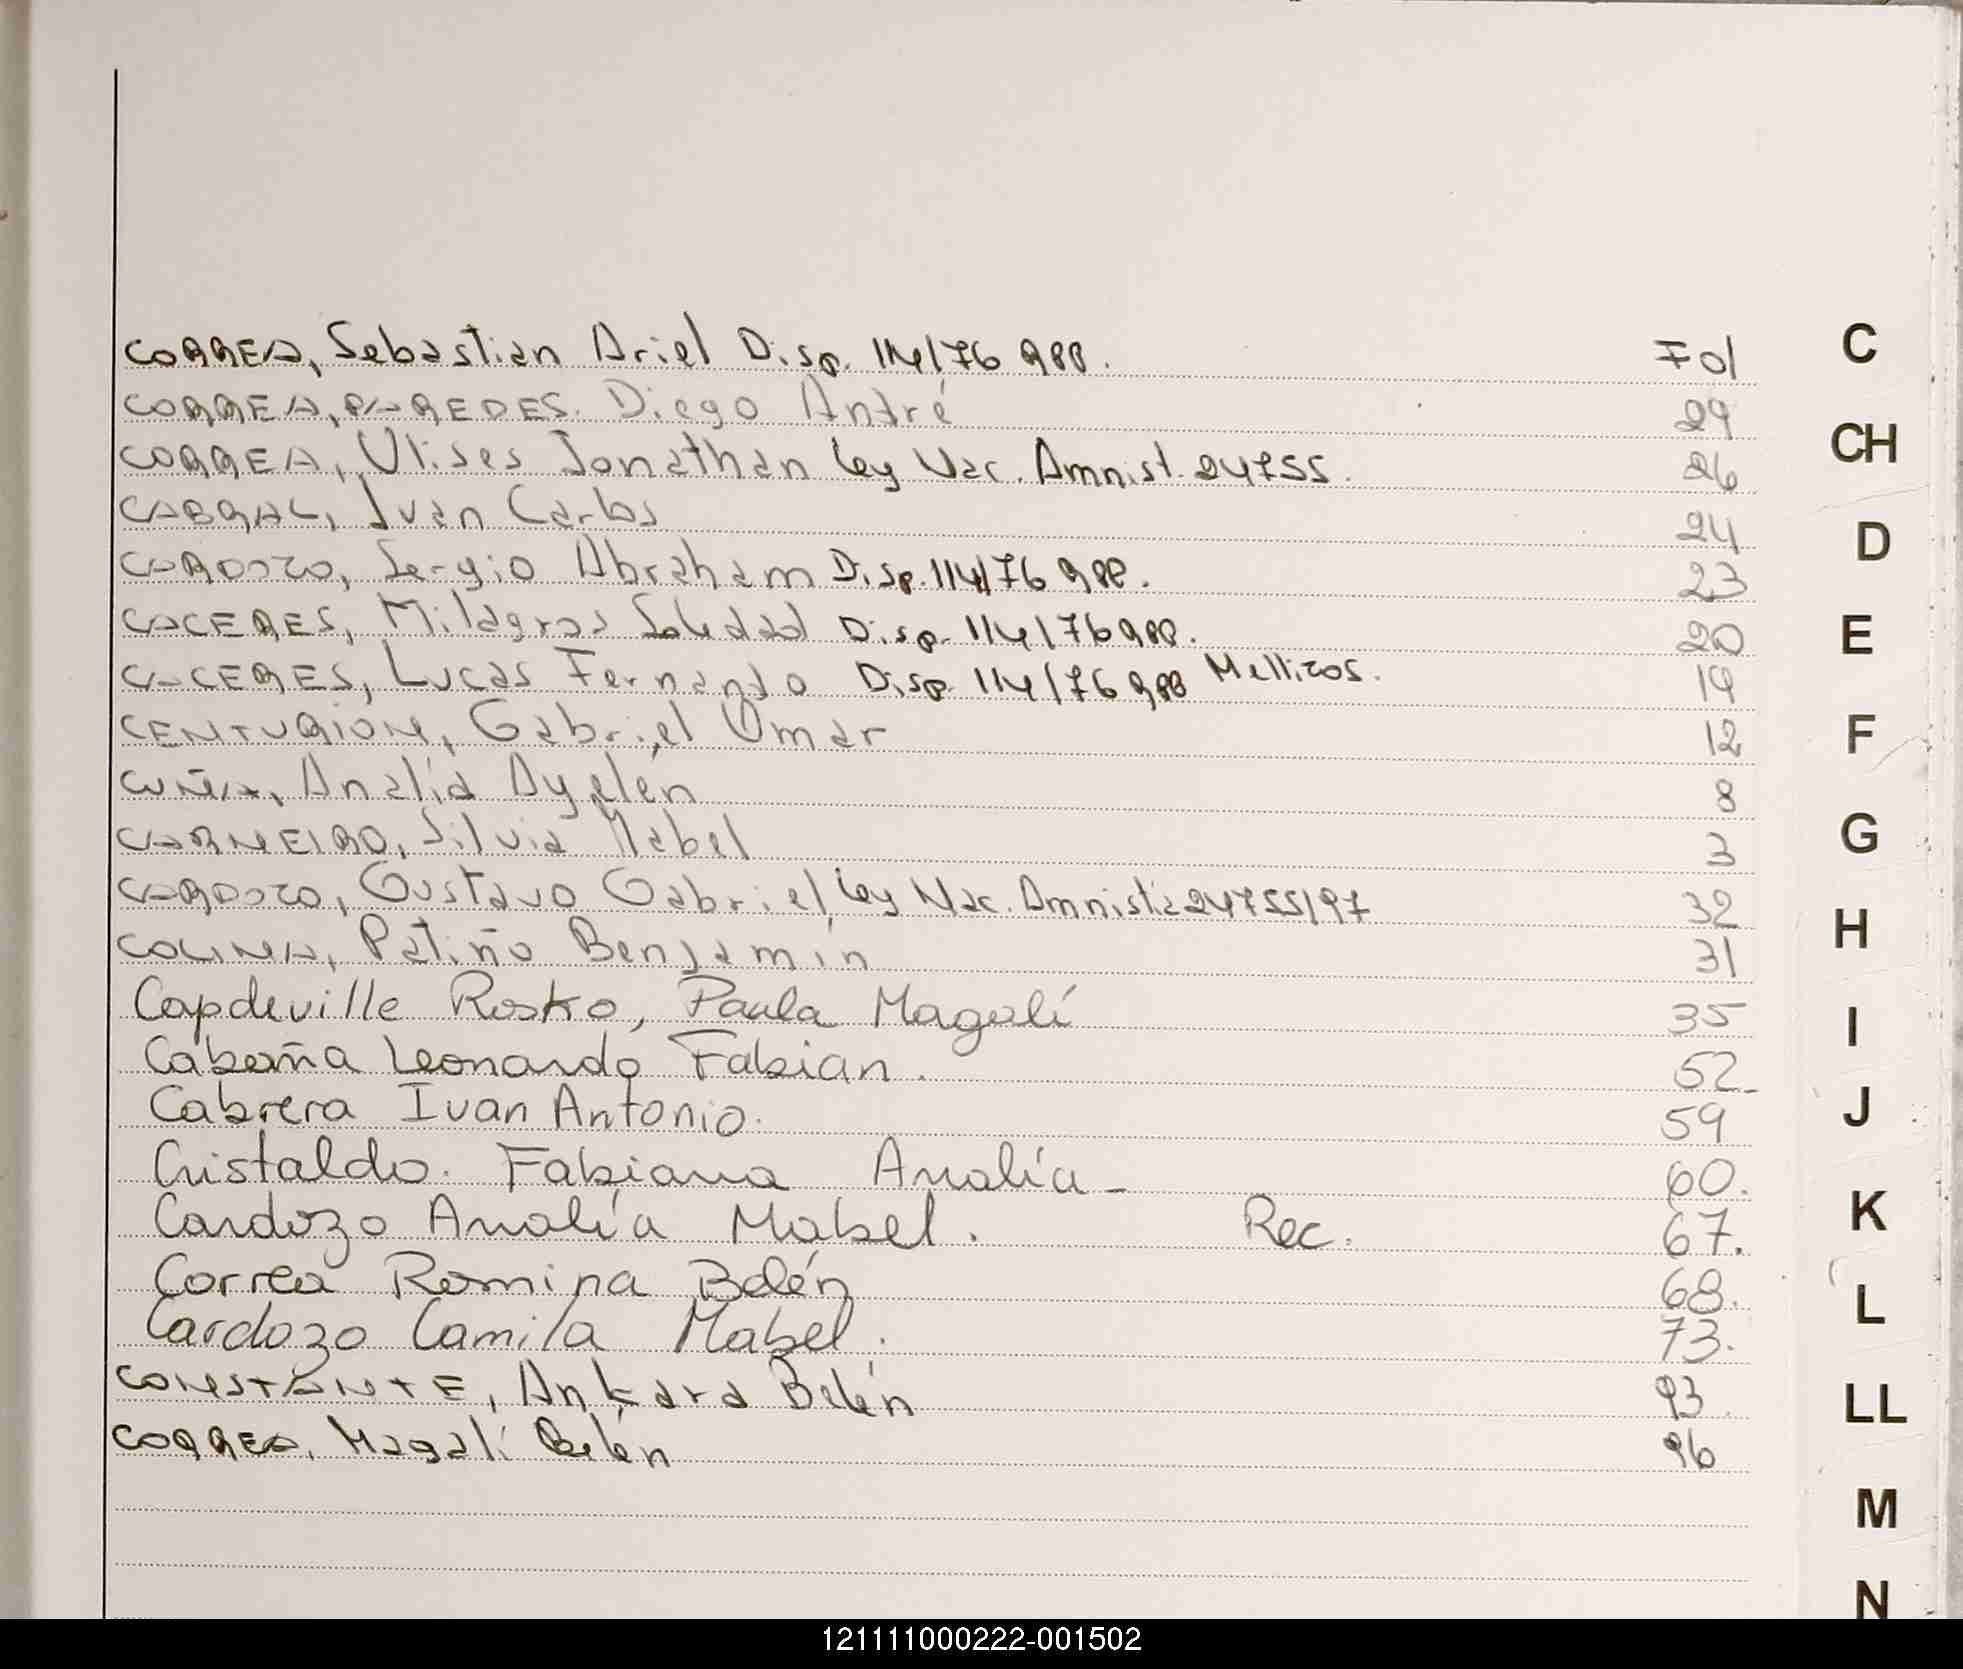 CORREA, Sebastian Ariel Disp. 114/76 988. Fol
CORREA, PAREDES. Diego André 29
CORREA, Ulises Jonathan Ley Nac. Amnist. 24755. 26
CABRAL, Ivan Carlos 24
CARDOZO, Sergio Abraham Disp. 114/76 988. 23
CACERES, Milagros Soledad Disp. 114/76 988. 20
CACERES, Lucas Fernando Disp. 114/76 988 Mellizos. 19
CENTURION, Gabriel Omar 12
CUÑA, Analía Ayelén 8
CARNEIRO, Silvia Mabel 3
CARDOZO, Gustavo Gabriel Ley Nac. Amnistia 24755/97 32
COLINA, Patiño Benjamín 31
Capdeville Rosko, Paula Magalí 35
Cabaña Leonardo Fabian. 52-
Cabrera Ivan Antonio. 59
Cristaldo. Fabiana Analía- 60.
Cardozo Analía Mabel. Rec. 67.
Correa Romina Belén 68.
Cardozo Camila Mabel. 73.
CONSTANTE, Ankara Belén 93.
CORREA, Magalí Belén 96
C
CH
D
E
F
G
H
I
J
K
L
LL
M
N
121111000222-001502